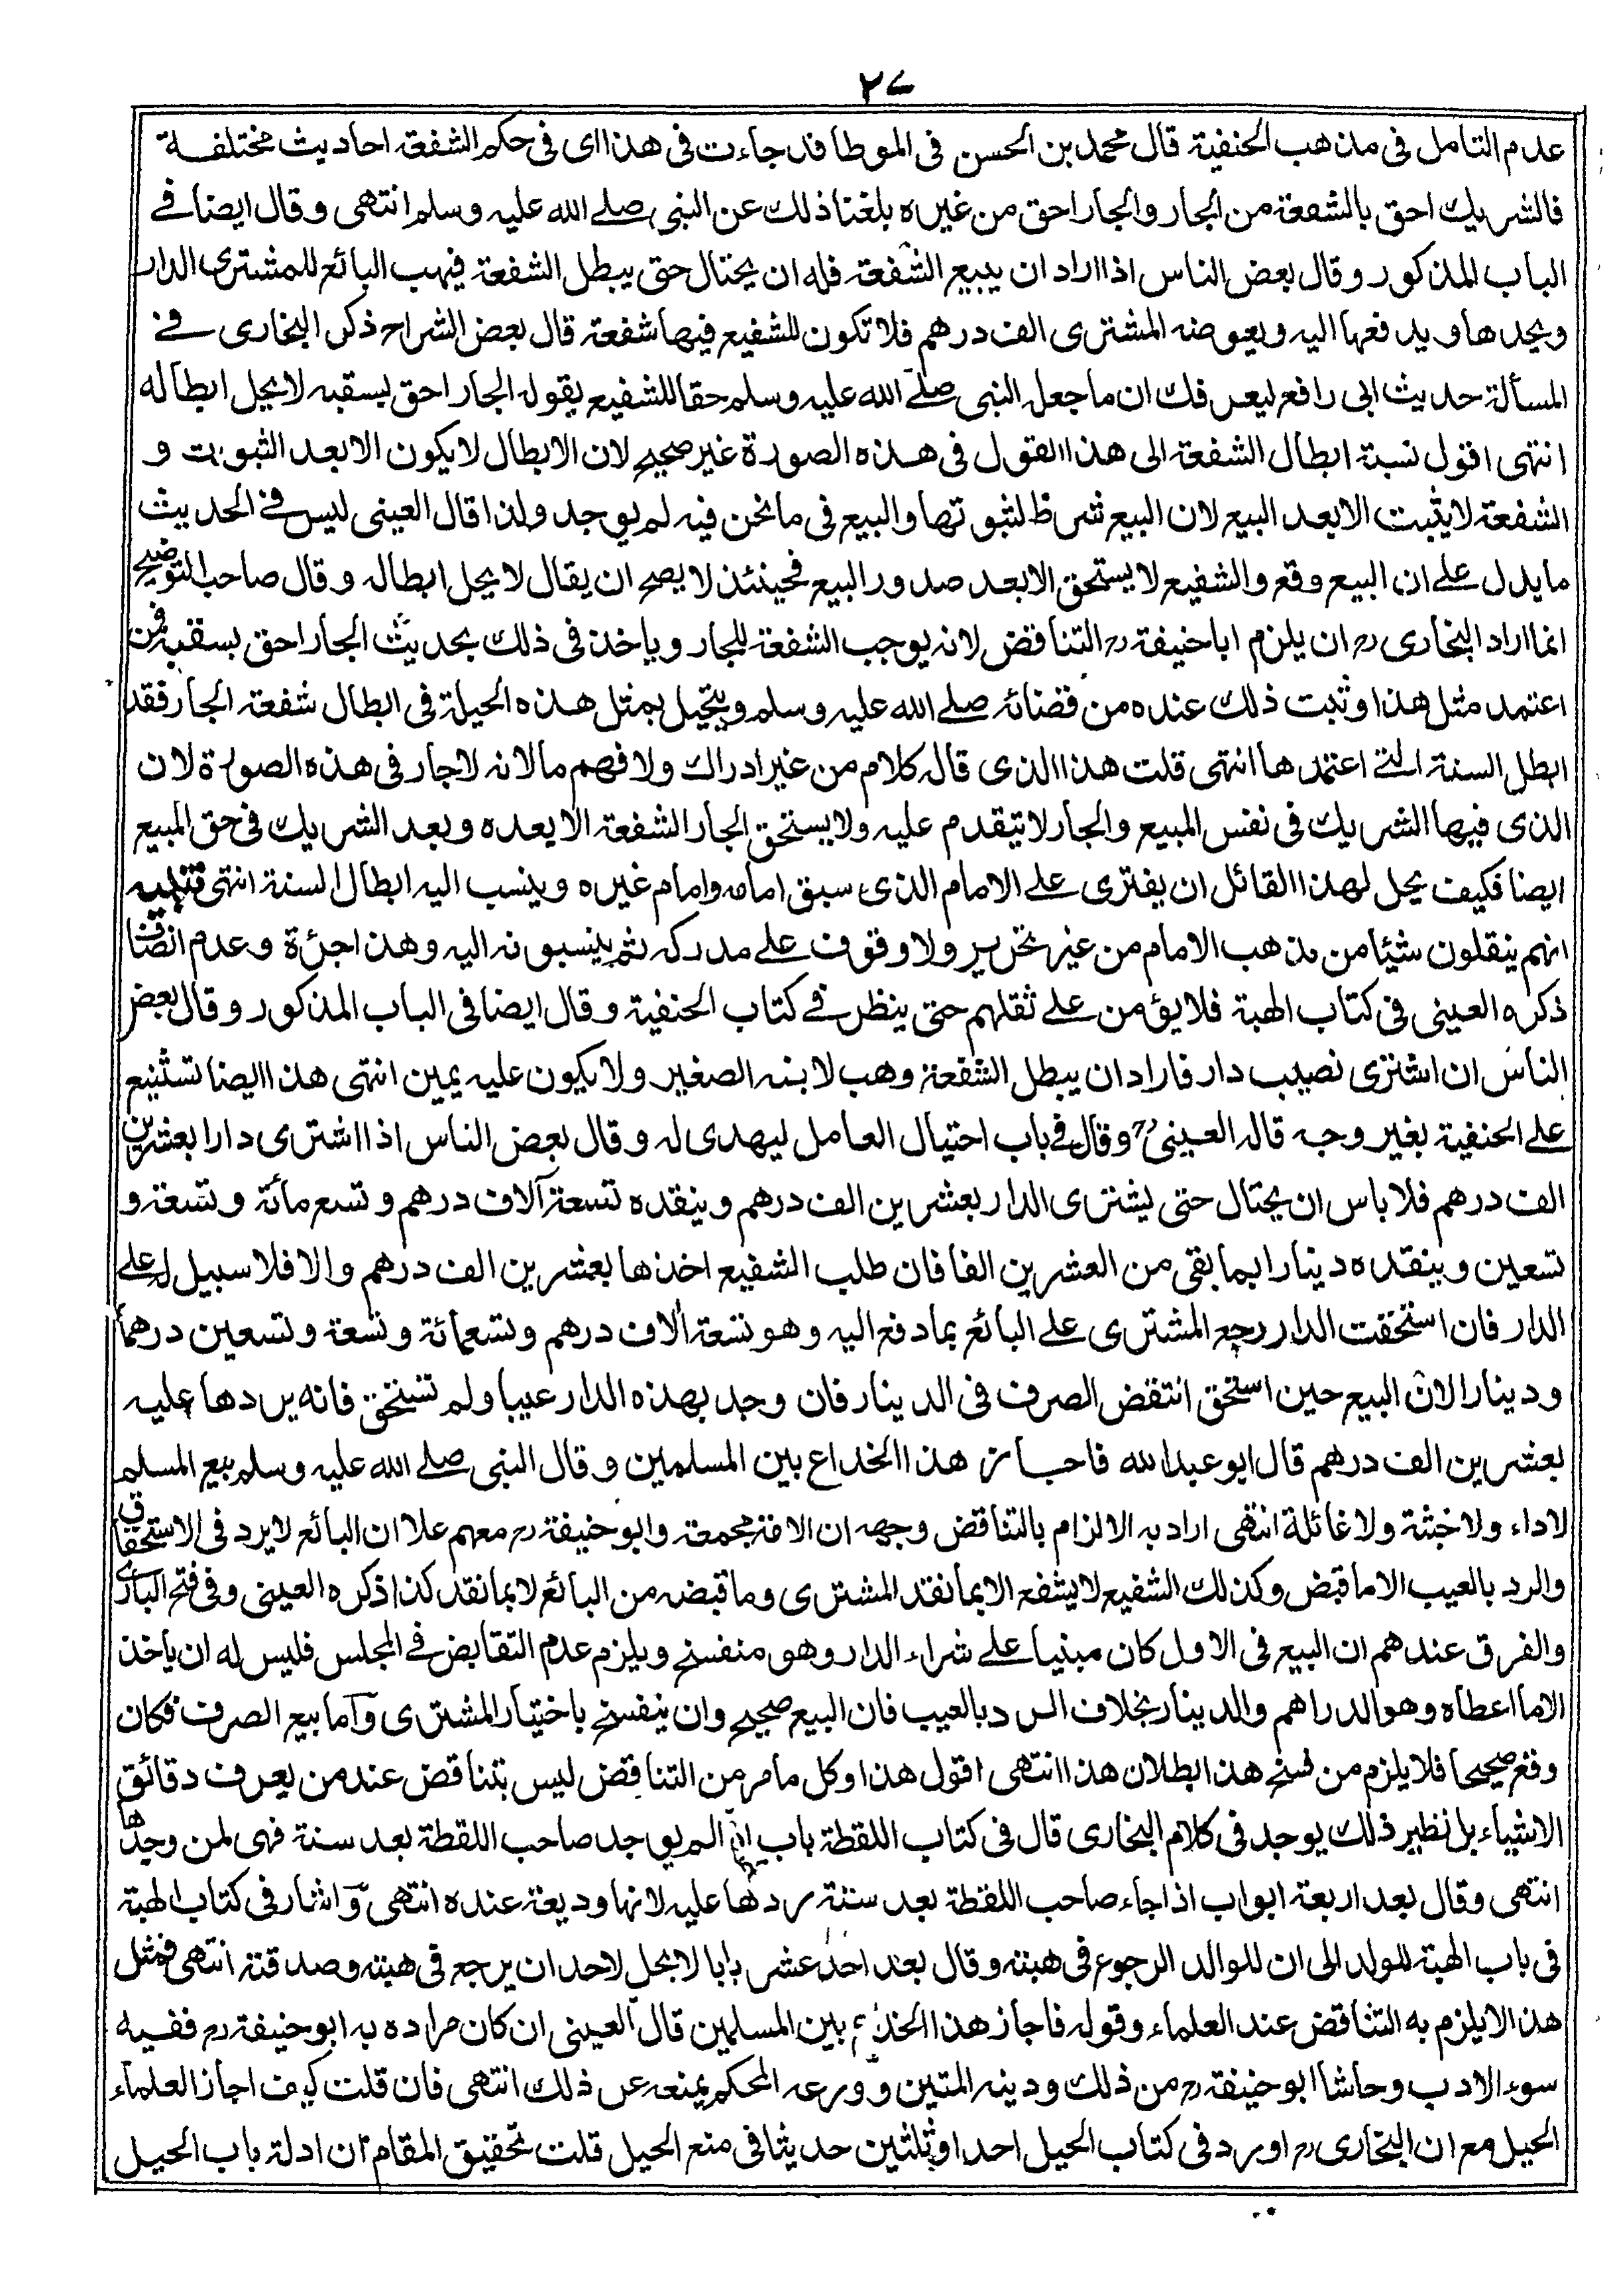 ٢٧
عدم التامل فى مذهب الحنفية قال محمد بن الحسن فى الموطا قد جاءت فى هذا اى فى حكم الشفعة احاديث مختلفة
فالشريك احق بالشفعة من الجار والجار احق من غيره بلغنا ذلك عن النبى صلے الله عليه وسلم انتهى وقال ايضا فے
الباب المذكور وقال بعض الناس اذا اراد ان يبيع الشفعة فله ان يحتال حتى يبطل الشفعة فيهب البائع للمشترى الدار
ويحدها ويدفعها اليه ويعوضه المشترى الف درهم فلا تكون للشفيع فيها شفعة قال بعض الشراح ذكر البخارى فے
المسألة حديث ابى رافع ليعرفك ان ما جعل النبى صلے الله عليه وسلم حقا للشفيع بقوله الجار احق بسقبه لا يحل ابطاله
انتهى اقول نسبة ابطال الشفعة الى هذا القول فى هذه الصورة غير صحيح لان الابطال لا يكون الا بعد الثبوت و
الشفعة لا يثبت الا بعد البيع لان البيع شرط لثبوتها والبيع فى ما نحن فيه لم يوجد ولذا قال العينى ليس فے الحديث
ما يدل علے ان البيع وقع والشفيع لا يستحق الا بعد صدور البيع فحينئذ لا يصح ان يقال لا يحل ابطاله وقال صاحب التوضيح
انما اراد البخارى رح ان يلزم ابا حنيفة رح التناقض لانه يوجب الشفعة للجار وياخذ فى ذلك بحديث الجار احق بسقبه فمن
اعتمد مثل هذا وثبت ذلك عنده من قضائه صلے الله عليه وسلم ويتحيل بمثل هذه الحيلة فى ابطال شفعة الجار فقد
ابطل السنة التے اعتمدها انتهى قلت هذا الذى قاله كلام من غير ادراك ولا فهم مالانه لا جار فى هذه الصورة لان
الذى فيها الشريك فى نفس المبيع والجار لا يتقدم عليه ولا يستحق الجار الشفعة الا بعده وبعد الشريك فى حق المبيع
ايضا فكيف يحل لهذا القائل ان يفترى علے الامام الذى سبق امامه وامام غيره وينسب اليه ابطال السنة انتهى تنبيه
انهم ينقلون شيئا من مذهب الامام من غير تحرير ولا وقوف علے مدركه ثم ينسبونه اليه وهذا جرئة وعدم انصاف
ذكره العينى فى كتاب الهبة فلا يؤمن علے ثقلهم حتى ينظر فے كتاب الحنفية وقال ايضا فى الباب المذكور وقال بعض
الناس ان اشترى نصيب دار فاراد ان يبطل الشفعة وهب لابنه الصغير ولا يكون عليه يمين انتهى هذا ايضا تشنيع
علے الحنفية بغير وجه قاله العينى رح وقال فى باب احتيال العامل ليهدى له وقال بعض الناس اذا اشترى دارا بعشرين
الف درهم فلا باس ان يحتال حتى يشترى الدار بعشرين الف درهم وينقده تسعة آلاف درهم وتسع مائة وتسعة و
تسعين وينقده دينارا بما بقى من العشرين الفا فان طلب الشفيع اخذها بعشرين الف درهم والا فلا سبيل له علے
الدار فان استحقت الدار رجع المشترى علے البائع بما دفع اليه وهو تسعة الاف درهم وتسعمائة وتسعة وتسعين درهما
ودينارا لان البيع حين استحق انتقض الصرف فى الدينار فان وجد بهذه الدار عيبا ولم تستحق فانه يردها عليه
بعشرين الف درهم قال ابو عبدالله فاحباز هذا الخداع بين المسلمين وقال النبى صلے الله عليه وسلم بيع المسلم
لاداء ولا خبثة ولا غائلة انتهى اراد به الالزام بالتناقض وجهه ان الامة مجمعة وابو حنيفة رح معهم علا ان البائع لا يرد فى الاستحقاق
والرد بالعيب الا ما قبض وكذلك الشفيع لا يشفع الا بما نقد المشترى وما قبضه من البائع لا بما نقد كذا ذكره العينى وفى فتح البارى
والفرق عندهم ان البيع فى الاول كان مبنيا علے شراء الدار وهو منفسخ ويلزم عدم التقابض فے المجلس فليس له ان ياخذ
الا ما اعطاه وهو الدراهم والدينار بخلاف الرد بالعيب فان البيع صحيح وان ينفسخ باختيار المشترى وآما بيع الصرف فكان
وقع صحيحا فلا يلزم من فسخ هذا بطلان هذا انتهى اقول هذا وكل ما مر من التناقض ليس بتناقض عند من يعرف دقائق
الاشياء بل نظير ذلك يوجد فى كلام البخارى قال فى كتاب اللقطة باب اذا لم يوجد صاحب اللقطة بعد سنة فهى لمن وجدها
انتهى وقال بعد اربعة ابواب اذا جاء صاحب اللقطة بعد سنة ردها عليه لانها وديعة عنده انتهى وآشار فى كتاب الهبة
فى باب الهبة للولد الى ان للوالد الرجوع فى هبته وقال بعد احد عشر بابا لا يحل لاحد ان يرجع فى هبته وصدقته انتهى فمثل
هذا لا يلزم به التناقض عند العلماء وقوله فاجاز هذا الخداع بين المسلمين قال العينى ان كان مراده به ابو حنيفة رح ففيه
سوء الادب وحاشا ابو حنيفة رح من ذلك ودينه المتين وورعه المحكم يمنعه عن ذلك انتهى فان قلت كيف اجاز العلماء
الحيل مع ان البخارى رح اورد فى كتاب الحيل احدا وثلثين حديثا فى منع الحيل قلت تحقيق المقام ان ادلة باب الحيل